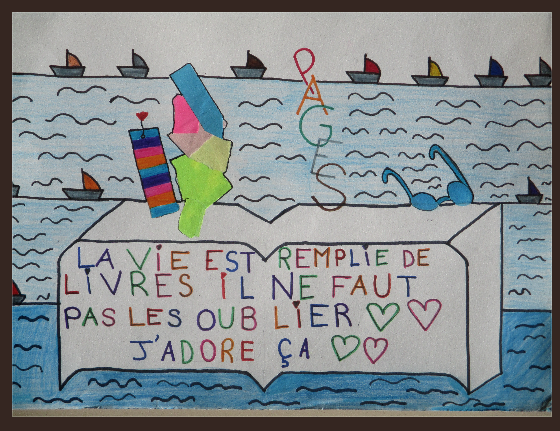 PAGES
LA VIE EST REMPLIE DE
LIVRES IL NE FAUT
PAS LES OUBLIER
J'ADORE ÇA